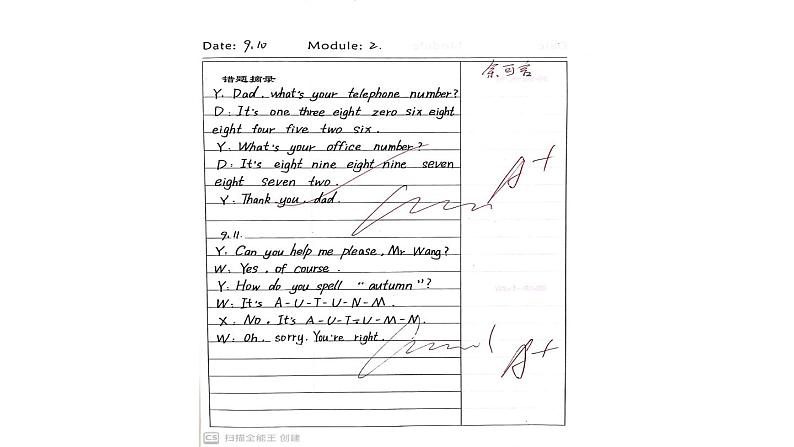 Date: 9.10 Module: 2.
错题摘录
余可言
Y. Dad, what's your telephone number?
D: It's one three eight zero six eight
eight four five two six.
Y. What's your office number?
D: It's eight nine eight nine seven
eight seven two.
Y. Thank you, dad.
A+
9.11.
Y. Can you help me please, Mr Wang?
W. Yes, of course.
Y: How do you spell "autumn"?
W: It's A-U-T-U-N-M.
X: No, It's A-U-T-U-M-N.
W: Oh, sorry. You're right.
A+
CS 扫描全能王 创建